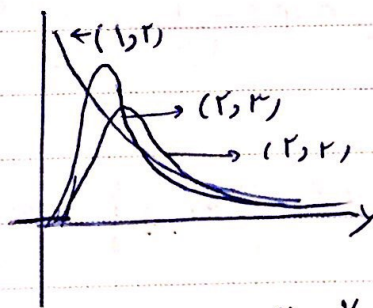 (۱,۲)
(۲,۳)
(۲,۲)
y